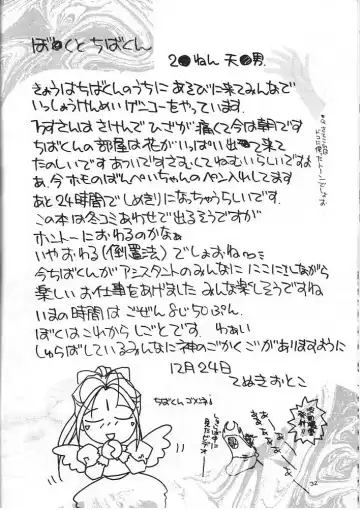 ぼ●くとちばくん
2●ねん 天●男.
きょうはちばくんのうちに あそびに来てみんなで
いっしょうけんめいゲンコーをやっています.
さんは さけんで ひざが 痛くて今は朝です
ちばくんの部屋は花がいっぱい出て来て
たのしいです あついですさむくてねむいらしいですよ
あ、今ホものばんぺいちゃんのペン入れしてます
あと24時間で しめきりになっちゃうらしいです.
この本は冬コミあわせで出るそうですが
ホントーにおわるのかなぁ
いやおわる(倒置法)でしょおね
今ちばくんが アシスタントのみんなに にこにこしながら
楽しい お仕事をあげました みんな楽しそうですね
いまの時間は ごぜん 8じ50ぷん.
ぼくはこれから しごとです. わあい
しゅらばしているみんなに神のごかくごがありますように
12月24日
てぬきおとこ
ちばくんゴメンネ
32